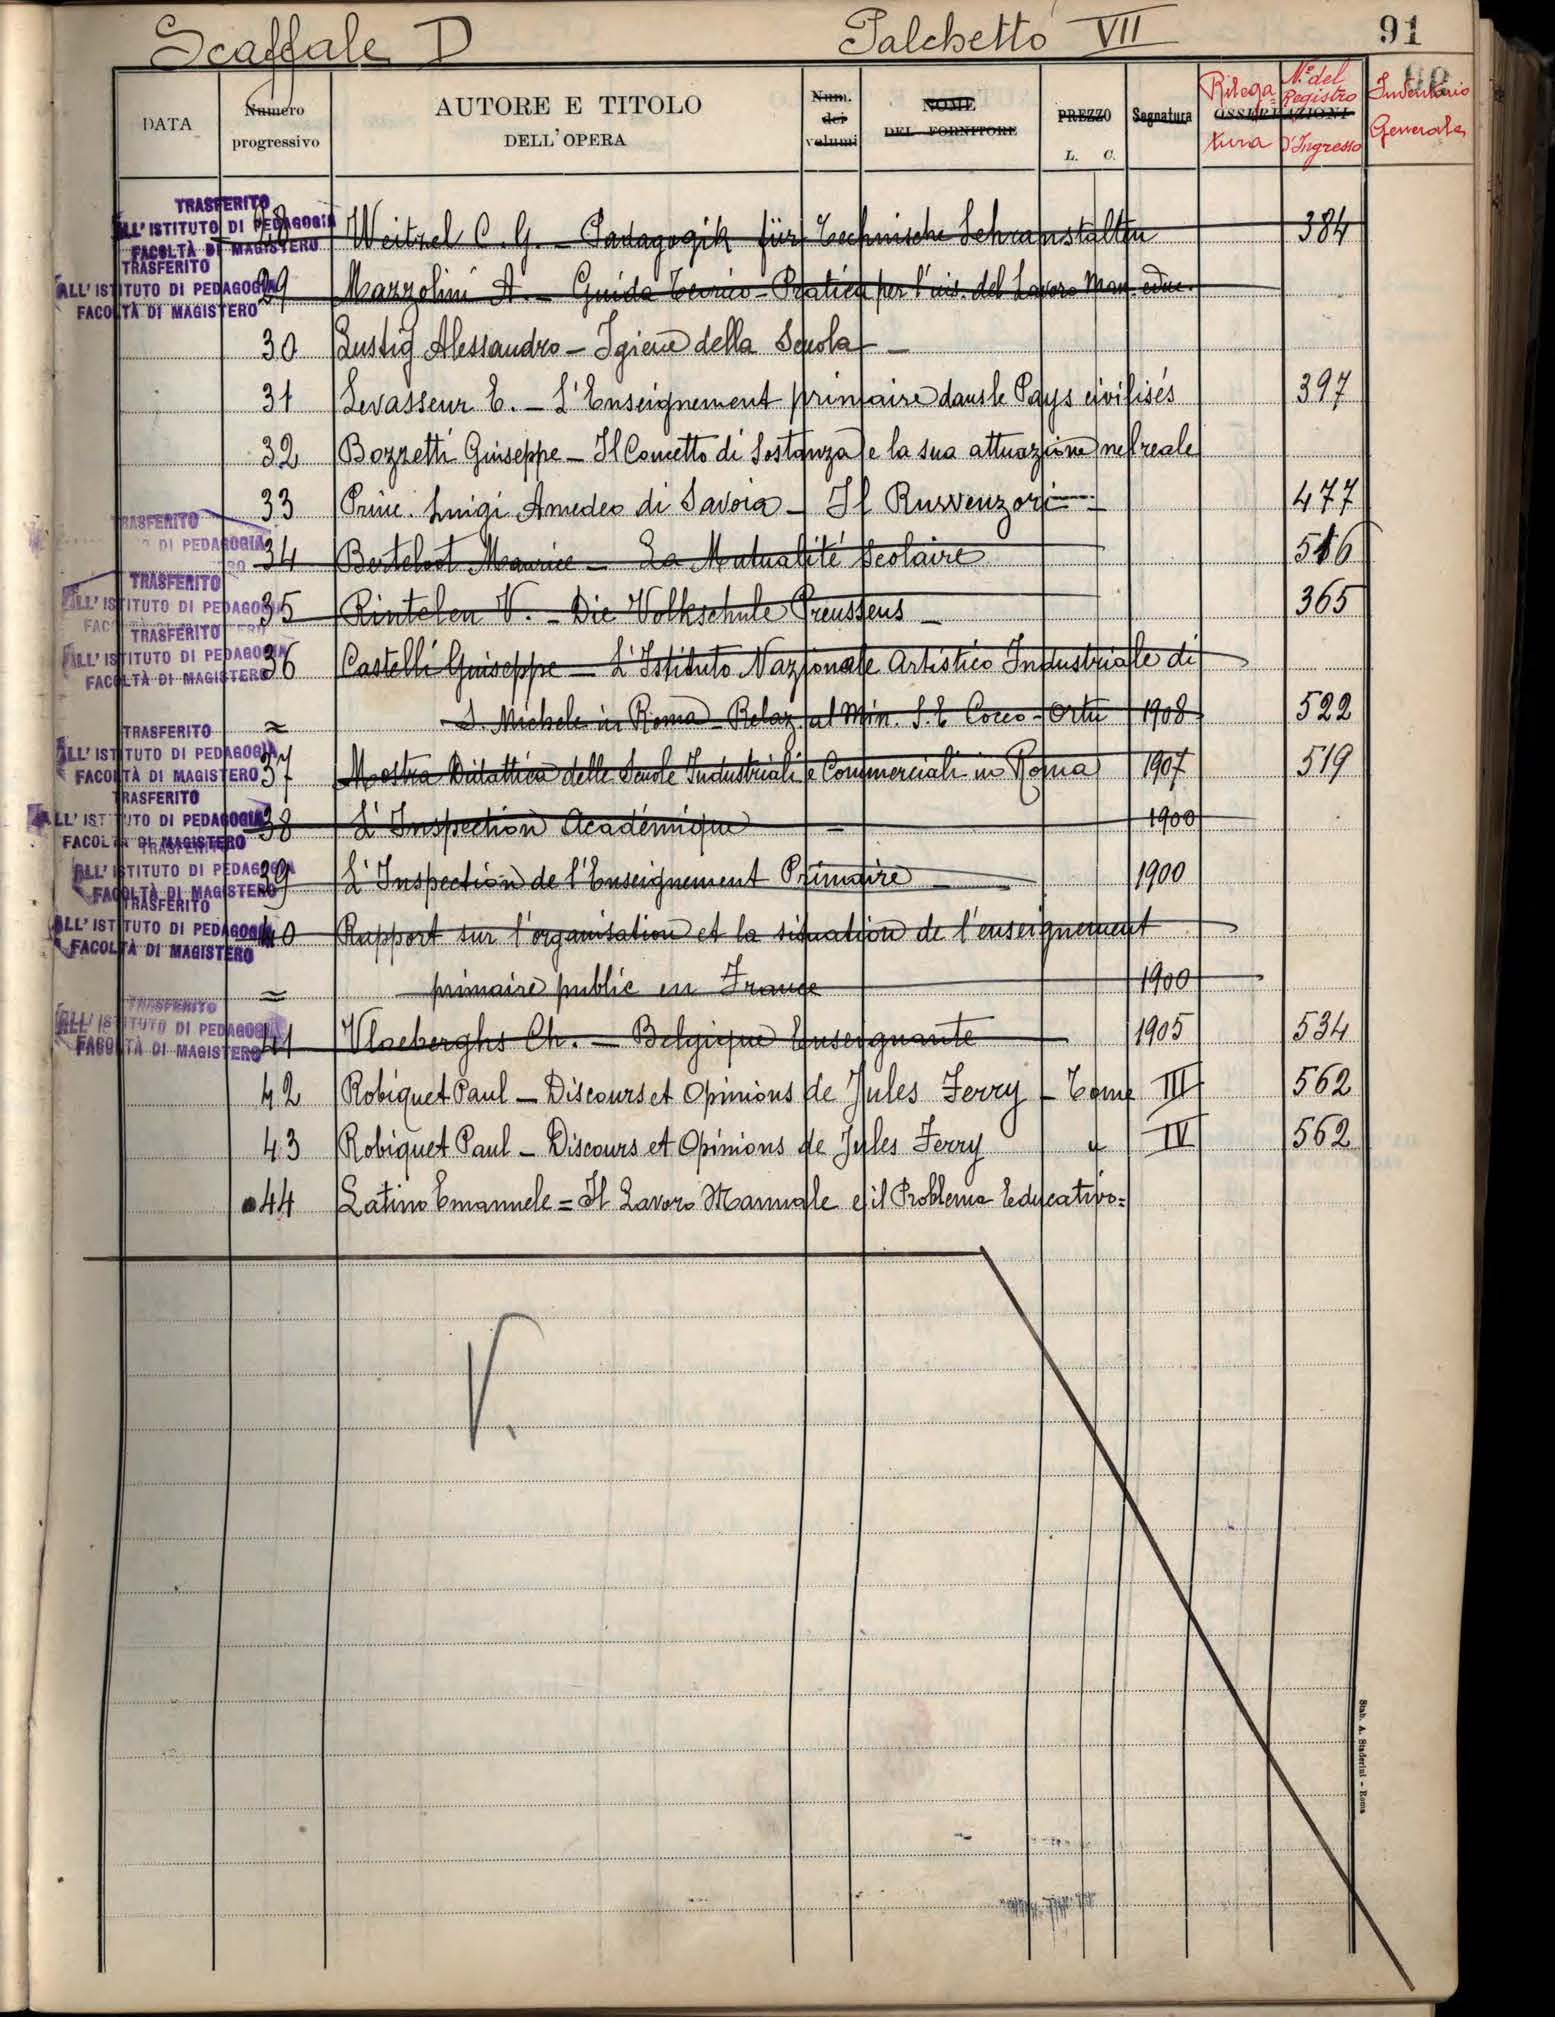 Scaffale D Palchetto VII 91
DATA Numero progressivo AUTORE E TITOLO DELL'OPERA Num. dei volumi NOME DEL FORNITORE PREZZO L. C. Segnatura OSSERVAZIONI Rilegatura N.° del Registro d'Ingresso Inventario Generale
TRASFERITO
ALL'ISTITUTO DI PEDAGOGIA
FACOLTÀ DI MAGISTERO
28 Weitzel C. G. – Padagogik für Technische Lehranstalten 384
TRASFERITO
ALL'ISTITUTO DI PEDAGOGIA
FACOLTÀ DI MAGISTERO
29 Mazzolini A. – Guida Teorico-Pratica per l'ins. del Lavoro Man. educ.
30 Lustig Alessandro – Igiene della Scuola –
31 Levasseur E. – L'Enseignement primaire dans le Pays civilisés 397
32 Bozzetti Giuseppe – Il Concetto di Sostanza e la sua attuazione nel reale
33 Princ. Luigi Amedeo di Savoia – Il Ruwenzori – 477
TRASFERITO
DI PEDAGOGIA
34 Berteloot Maurice – La Mutualité Scolaire 516
TRASFERITO
ALL'ISTITUTO DI PEDAGOGIA
35 Rintelen V. – Die Volkschule Preussens – 365
TRASFERITO
ALL'ISTITUTO DI PEDAGOGIA
FACOLTÀ DI MAGISTERO
36 Castelli Giuseppe – L'Istituto Nazionale Artistico Industriale di
= S. Michele in Roma – Relaz. al Min. S. E. Cocco-Ortu 1908 522
TRASFERITO
ALL'ISTITUTO DI PEDAGOGIA
FACOLTÀ DI MAGISTERO
37 Mostra Didattica delle Scuole Industriali e Commerciali in Roma 1907 519
TRASFERITO
ALL'ISTITUTO DI PEDAGOGIA
FACOLTÀ DI MAGISTERO
38 L'Inspection Académique – 1900
TRASFERITO
ALL'ISTITUTO DI PEDAGOGIA
FACOLTÀ DI MAGISTERO
39 L'Inspection de l'Enseignement Primaire – 1900
TRASFERITO
ALL'ISTITUTO DI PEDAGOGIA
FACOLTÀ DI MAGISTERO
40 Rapport sur l'organisation et la situation de l'enseignement
= primaire public en France 1900
TRASFERITO
ALL'ISTITUTO DI PEDAGOGIA
FACOLTÀ DI MAGISTERO
41 Vlaeberghs Ch. – Belgique Enseignante 1905 534
42 Robiquet Paul – Discours et Opinions de Jules Ferry – Tome III 562
43 Robiquet Paul – Discours et Opinions de Jules Ferry " IV 562
44 Latino Emanuele = Il Lavoro Manuale e il Problema Educativo =
V.
Stab. A. Staderini - Roma